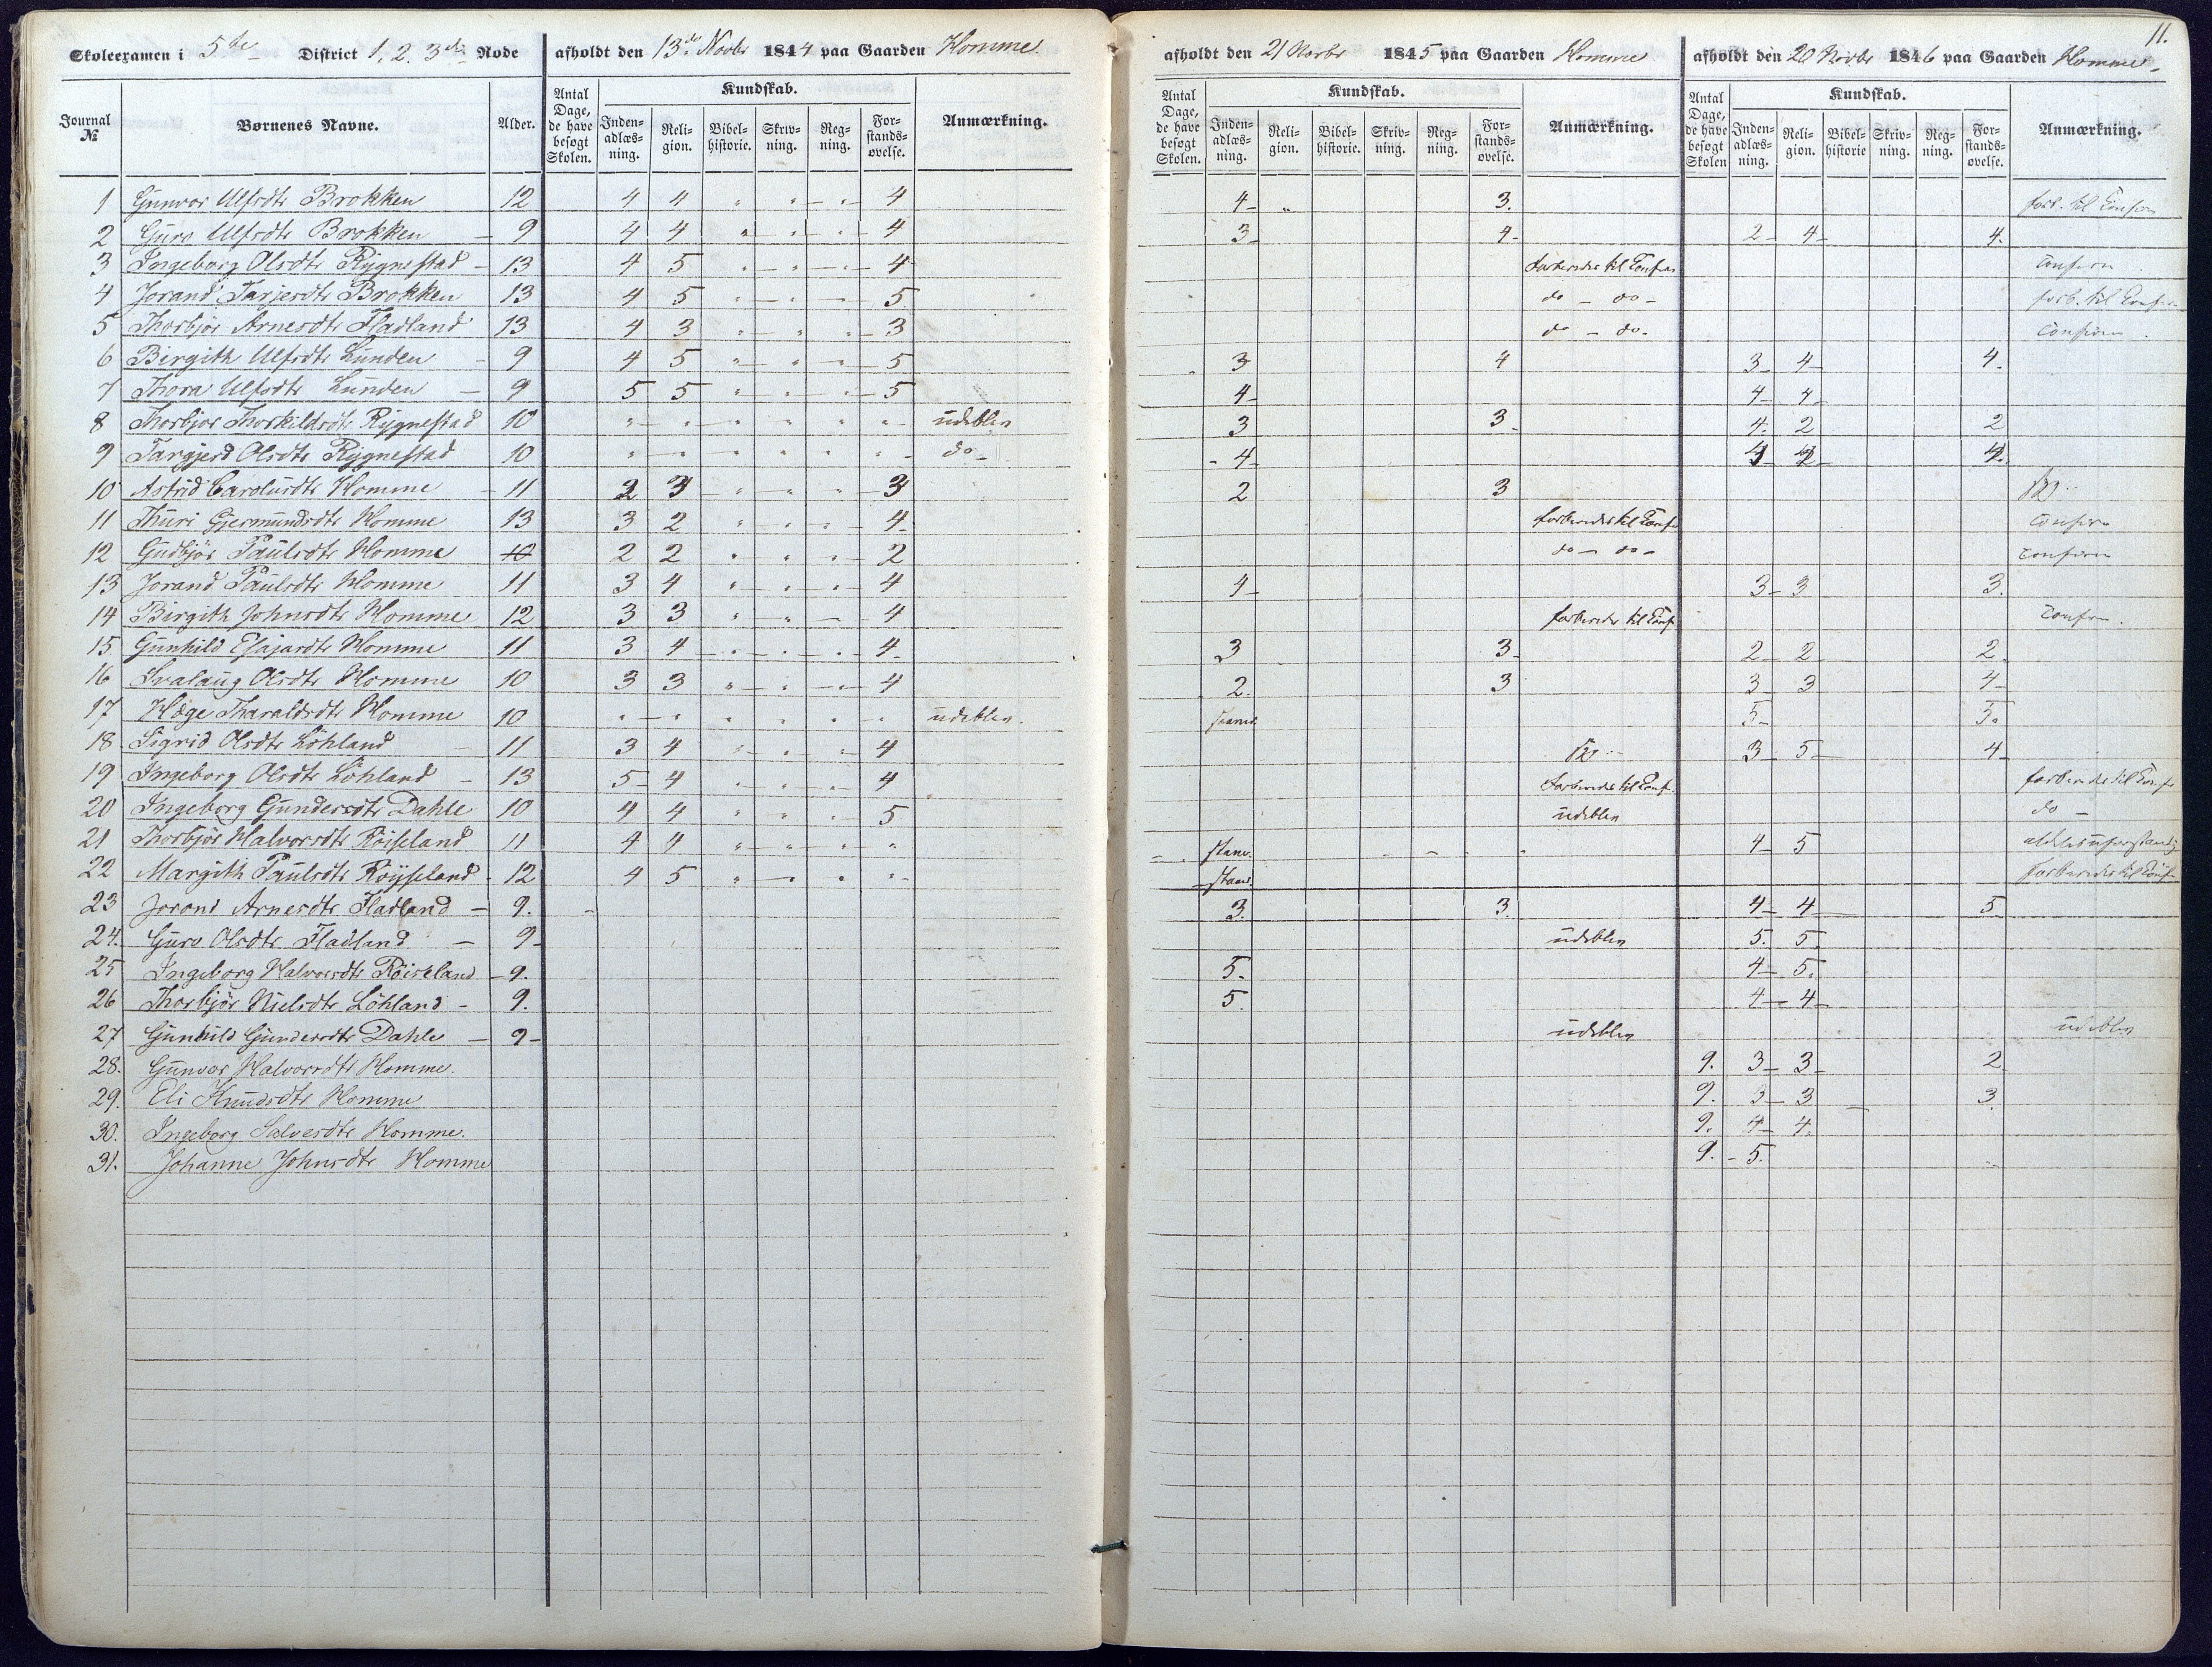 11.
Skoleexamen i 5te District 1, 2. 3die Rode afholdt den 13de Novbr 1844 paa Gaarden Homme.
afholdt den 21 Novbr 1845 paa Gaarden Homme
afholdt den 20 Novbr 1846 paa Gaarden Homme
Journal № Børnenes Navne. Alder. Antal Dage, de have besøgt Skolen. Kundskab. Inden-adlæs-ning. Reli-gion. Bibel-historie. Skriv-ning. Reg-ning. For-stands-øvelse. Anmærkning.
Antal Dage, de have besøgt Skolen. Kundskab. Inden-adlæs-ning. Reli-gion. Bibel-historie. Skriv-ning. Reg-ning. For-stands-øvelse. Anmærkning.
Antal Dage, de have besøgt Skolen Kundskab. Inden-adlæs-ning. Reli-gion. Bibel-historie Skriv-ning. Reg-ning. For-stands-øvelse. Anmærkning.
1 Gunvor Ulfsdtr Brokken 12 4 4 " " " 4 4 " 3. forb. til Confirm
2 Guro Ulfsdtr Brokken 9 4 4 " " " 4 3 4 2 4 4.
3 Ingeborg Olsdtr Rygnestad 13 4 5 " " " 4 forberedes til Confirm Confirm
4 Jorand Tarjersdtr Brokken 13 4 5 " " " 5 do - do - forb. til Confirm
5 Thorbjør Arnesdtr Fladland 13 4 3 " " " 3 do - do. Confirm
6 Birgith Ulfsdtr Lunden 9 4 5 " " " 5 3 4 3 4 4.
7 Thora Ulfsdtr Lunden 9 5 5 " " " 5 4 4 4
8 Thorbjør Thorkildsdtr Rygnestad 10 " " " " " " udeblev 3 3 4. 2 2
9 Targjerd Olsdtr Rygnestad 10 " " " " " " do 4
10 Astrid Carolusdtr Homme 11 2 3 " " " 3 2 3
11 Thuri Gjermundsdtr Homme 13 3 2 " " " 4 forberedes til Confr Confirm
12 Gudbjör Paulsdtr Homme 2 2 " " " 2 do - do - Confirm
13 Jorand Paulsdtr Homme 11 3 4 " " " 4 4 3 3 3.
14 Birgith Johnsdtr Homme 12 3 3 " " 4 forberedes til Conf Confirm.
15 Gunhild Esajasdtr Homme 11 3 4 " " " 4 3 3 2 2 2.
16 Svalaug Olsdtr Homme 10 3 3 " " " 4 2. 3 3 3 4
17 Hæge Tharaldsdtr Homme 10 " " " " " " udeblev. staver 5 5.
18 Sigrid Olsdtr Löhland 11 3 4 " " " 4 3 5 4
19 Ingeborg Olsdtr Löhland 13 5 4 " " " 4 forberedes til Conf. forberedes til Confr
20 Ingeborg Gundersdtr Dahle 10 4 4 " " " 5 udeblev do
21 Thorbjör Halvorsdtr Röiseland 11 4 4 " " " " staver. 4 5 aldeles uforstandig
22 Margith Paulsdtr Röyseland 12 4 5 " " " " staver. forberedes til Conf
23 Jorand Arnesdtr Fladland 9. 3. 3. 4 4 5
24. Guro Olsdtr Fladland 9 udeblev 5. 5
25 Ingeborg Halvorsdtr Röiseland 9. 5. 4 5.
26 Thorbjör Nielsdtr Löhland 9. 5 4 4
27 Gunhild Gundersdtr Dahle 9 udeblev udeblev
28. Gunvor Halvorsdtr Homme. 9. 3 3 2
29. Eli Knudsdtr Homme 9. 3 3 3
30. Ingeborg Salvesdtr Homme. 9. 4 4.
31. Johanne Johnsdtr Homme 9. 5.